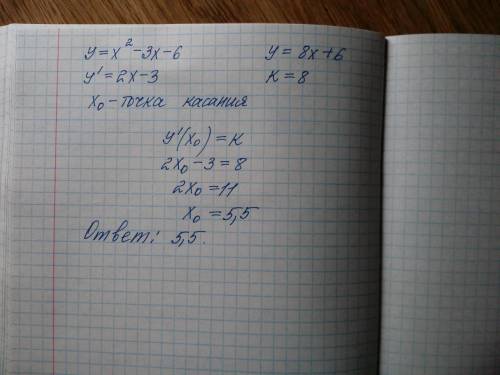 y = x² - 3x - 6    y = 8x + 6
y' = 2x - 3    k = 8
x₀ - точка касания
y'(x₀) = k
2x₀ - 3 = 8
2x₀ = 11
x₀ = 5,5
Ответ: 5,5.